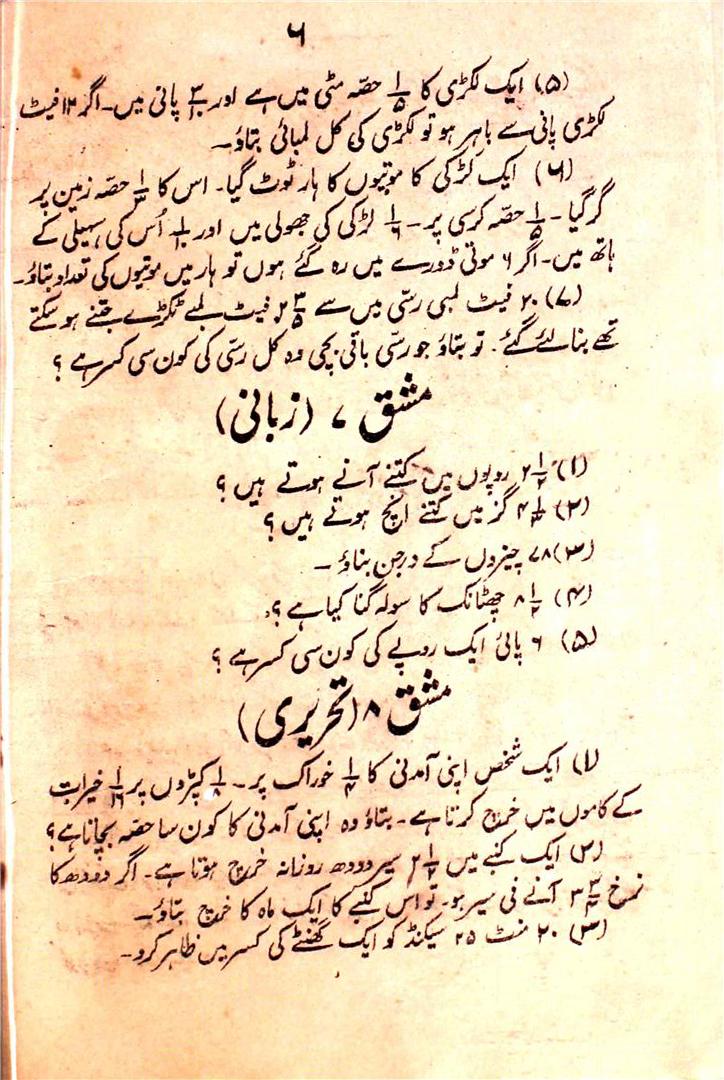 ۶
(۵) ایک لکڑی کا ۱/۵ حصّہ مٹی میں ہے اور ۳/۱۰ پانی میں۔ اگر ۱۲ فیٹ
لکڑی پانی سے باہر ہو تو لکڑی کی کل لمبائی بتاؤ۔
(۶) ایک لڑکی کا موتیوں کا ہار ٹوٹ گیا۔ اس کا ۱/۳ حصّہ زمین پر
گر گیا۔ ۱/۵ حصّہ کرسی پر۔ ۱/۶ لڑکی کی جھولی میں اور ۱/۱۰ اُس کی سہیلی کے
ہاتھ میں۔ اگر ۶ موتی ڈورے میں رہ گئے ہوں تو ہار میں موتیوں کی تعداد بتاؤ۔
(۷) ۲۰ فیٹ لمبی رسّی میں سے ۲ ۳/۵ فیٹ لمبے ٹکڑے جتنے ہو سکتے
تھے بنا لئے گئے۔ تو بتاؤ جو رسّی باقی بچی وہ کل رسّی کی کون سی کسر ہے ؟
مشق ۷ (زبانی)
(۱) ۲ ۱/۲ روپوں میں کتنے آنے ہوتے ہیں ؟
(۲) ۴ ۱/۴ گز میں کتنے انچ ہوتے ہیں ؟
(۳) ۷۸ چیزوں کے درجن بناؤ ۔
(۴) ۸ ۱/۲ چھٹانک کا سولہ گنا کیا ہے ؟
(۵) ۶ پائی ایک روپے کی کون سی کسر ہے ؟
مشق ۸ (تحریری)
(۱) ایک شخص اپنی آمدنی کا ۱/۴ خوراک پر۔ ۱/۸ کپڑوں پر ۱/۱۶ خیرات
کے کاموں میں خرچ کرتا ہے۔ بتاؤ وہ اپنی آمدنی کا کون سا حصّہ بچاتا ہے ؟
(۲) ایک کنبے میں ۲ ۱/۲ سیر دودھ روزانہ خرچ ہوتا ہے۔ اگر دودھ کا
نرخ ۳ ۳/۴ آنے فی سیر ہو۔ تو اس کنبے کا ایک ماہ کا خرچ بتاؤ۔
(۳) ۲۰ منٹ ۲۵ سیکنڈ کو ایک گھنٹے کی کسر میں ظاہر کرو۔